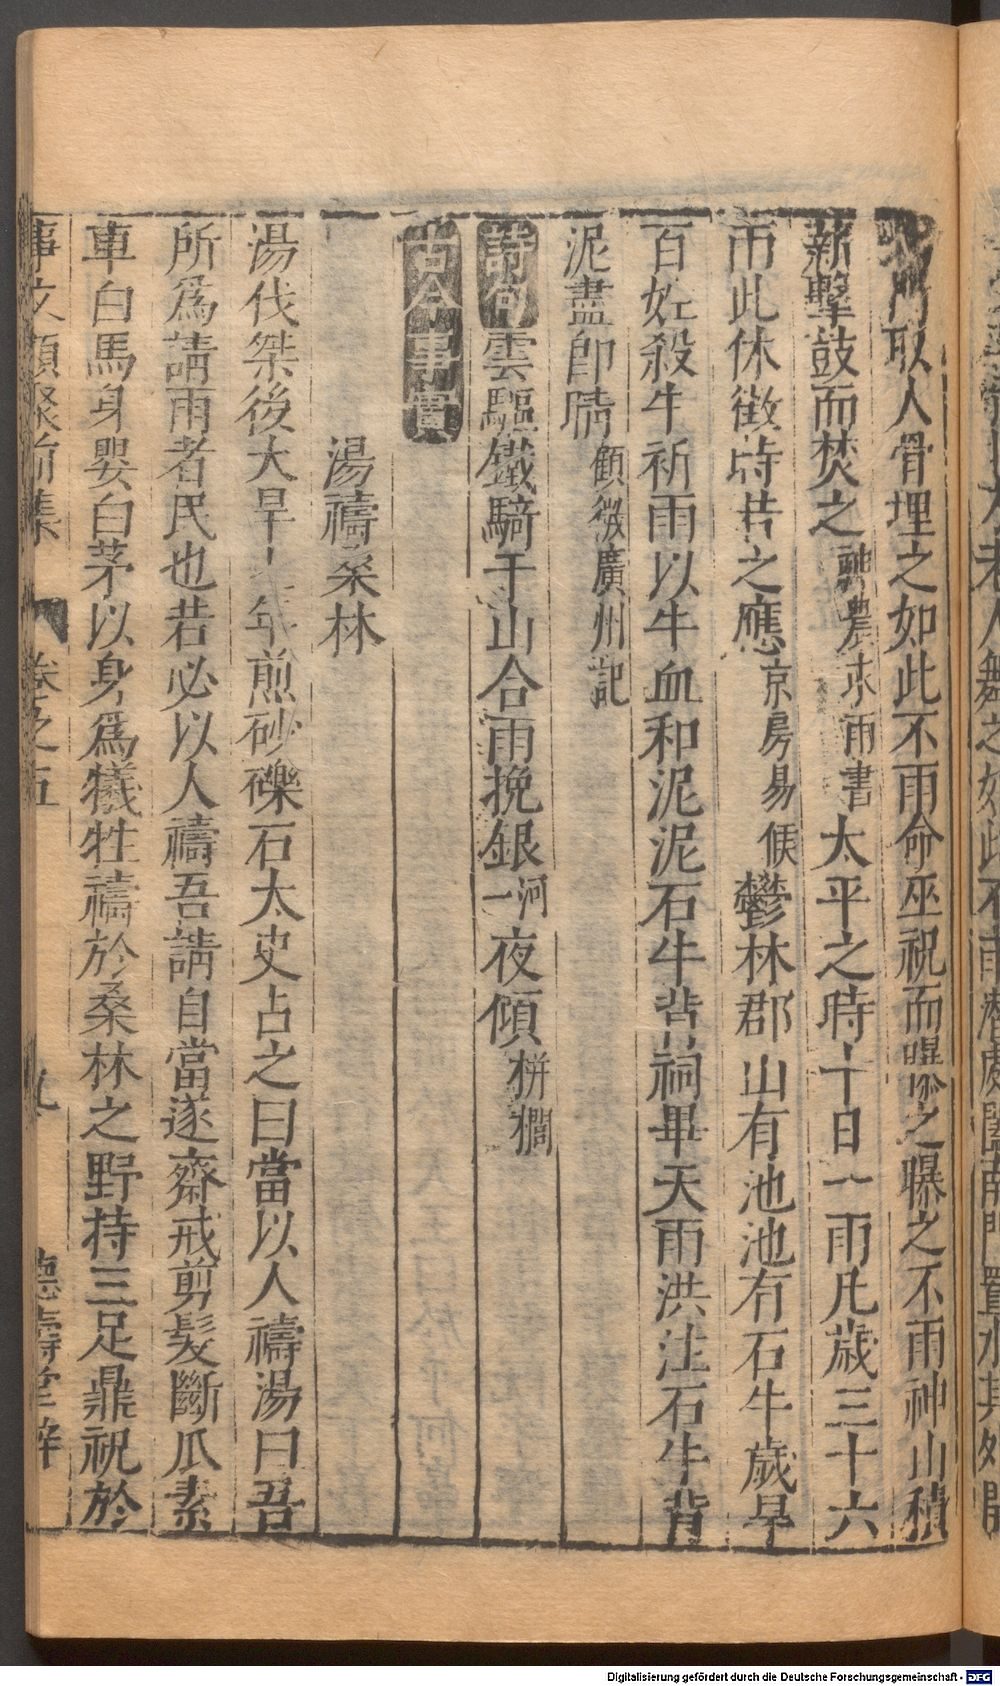 北門取人骨埋之如此不雨命巫祝而曝之曝之不雨神山積
薪擊鼓而焚之神農求雨書太平之時十日一雨凡歲三十六
雨此休徵時若之應京房易候鬱林郡山有池池有石牛歲旱
百姓殺牛祈雨以牛血和泥泥石牛背祠畢天雨洪注石牛背
泥盡即晴顧微廣州記
詩句雲驅鐵騎千山合雨挽銀河一夜傾栟櫚
古今事實
湯禱桑林
湯伐桀後大旱七年煎砂礫石太史占之曰當以人禱湯曰吾
所爲請雨者民也若必以人禱吾請自當遂齋戒剪髮斷瓜素
車白馬身嬰白茅以身爲犧牲禱於桑林之野持三足鼎祝於
事文類聚前集 卷之五 九 德壽堂梓
Digitalisierung gefördert durch die Deutsche Forschungsgemeinschaft - DFG